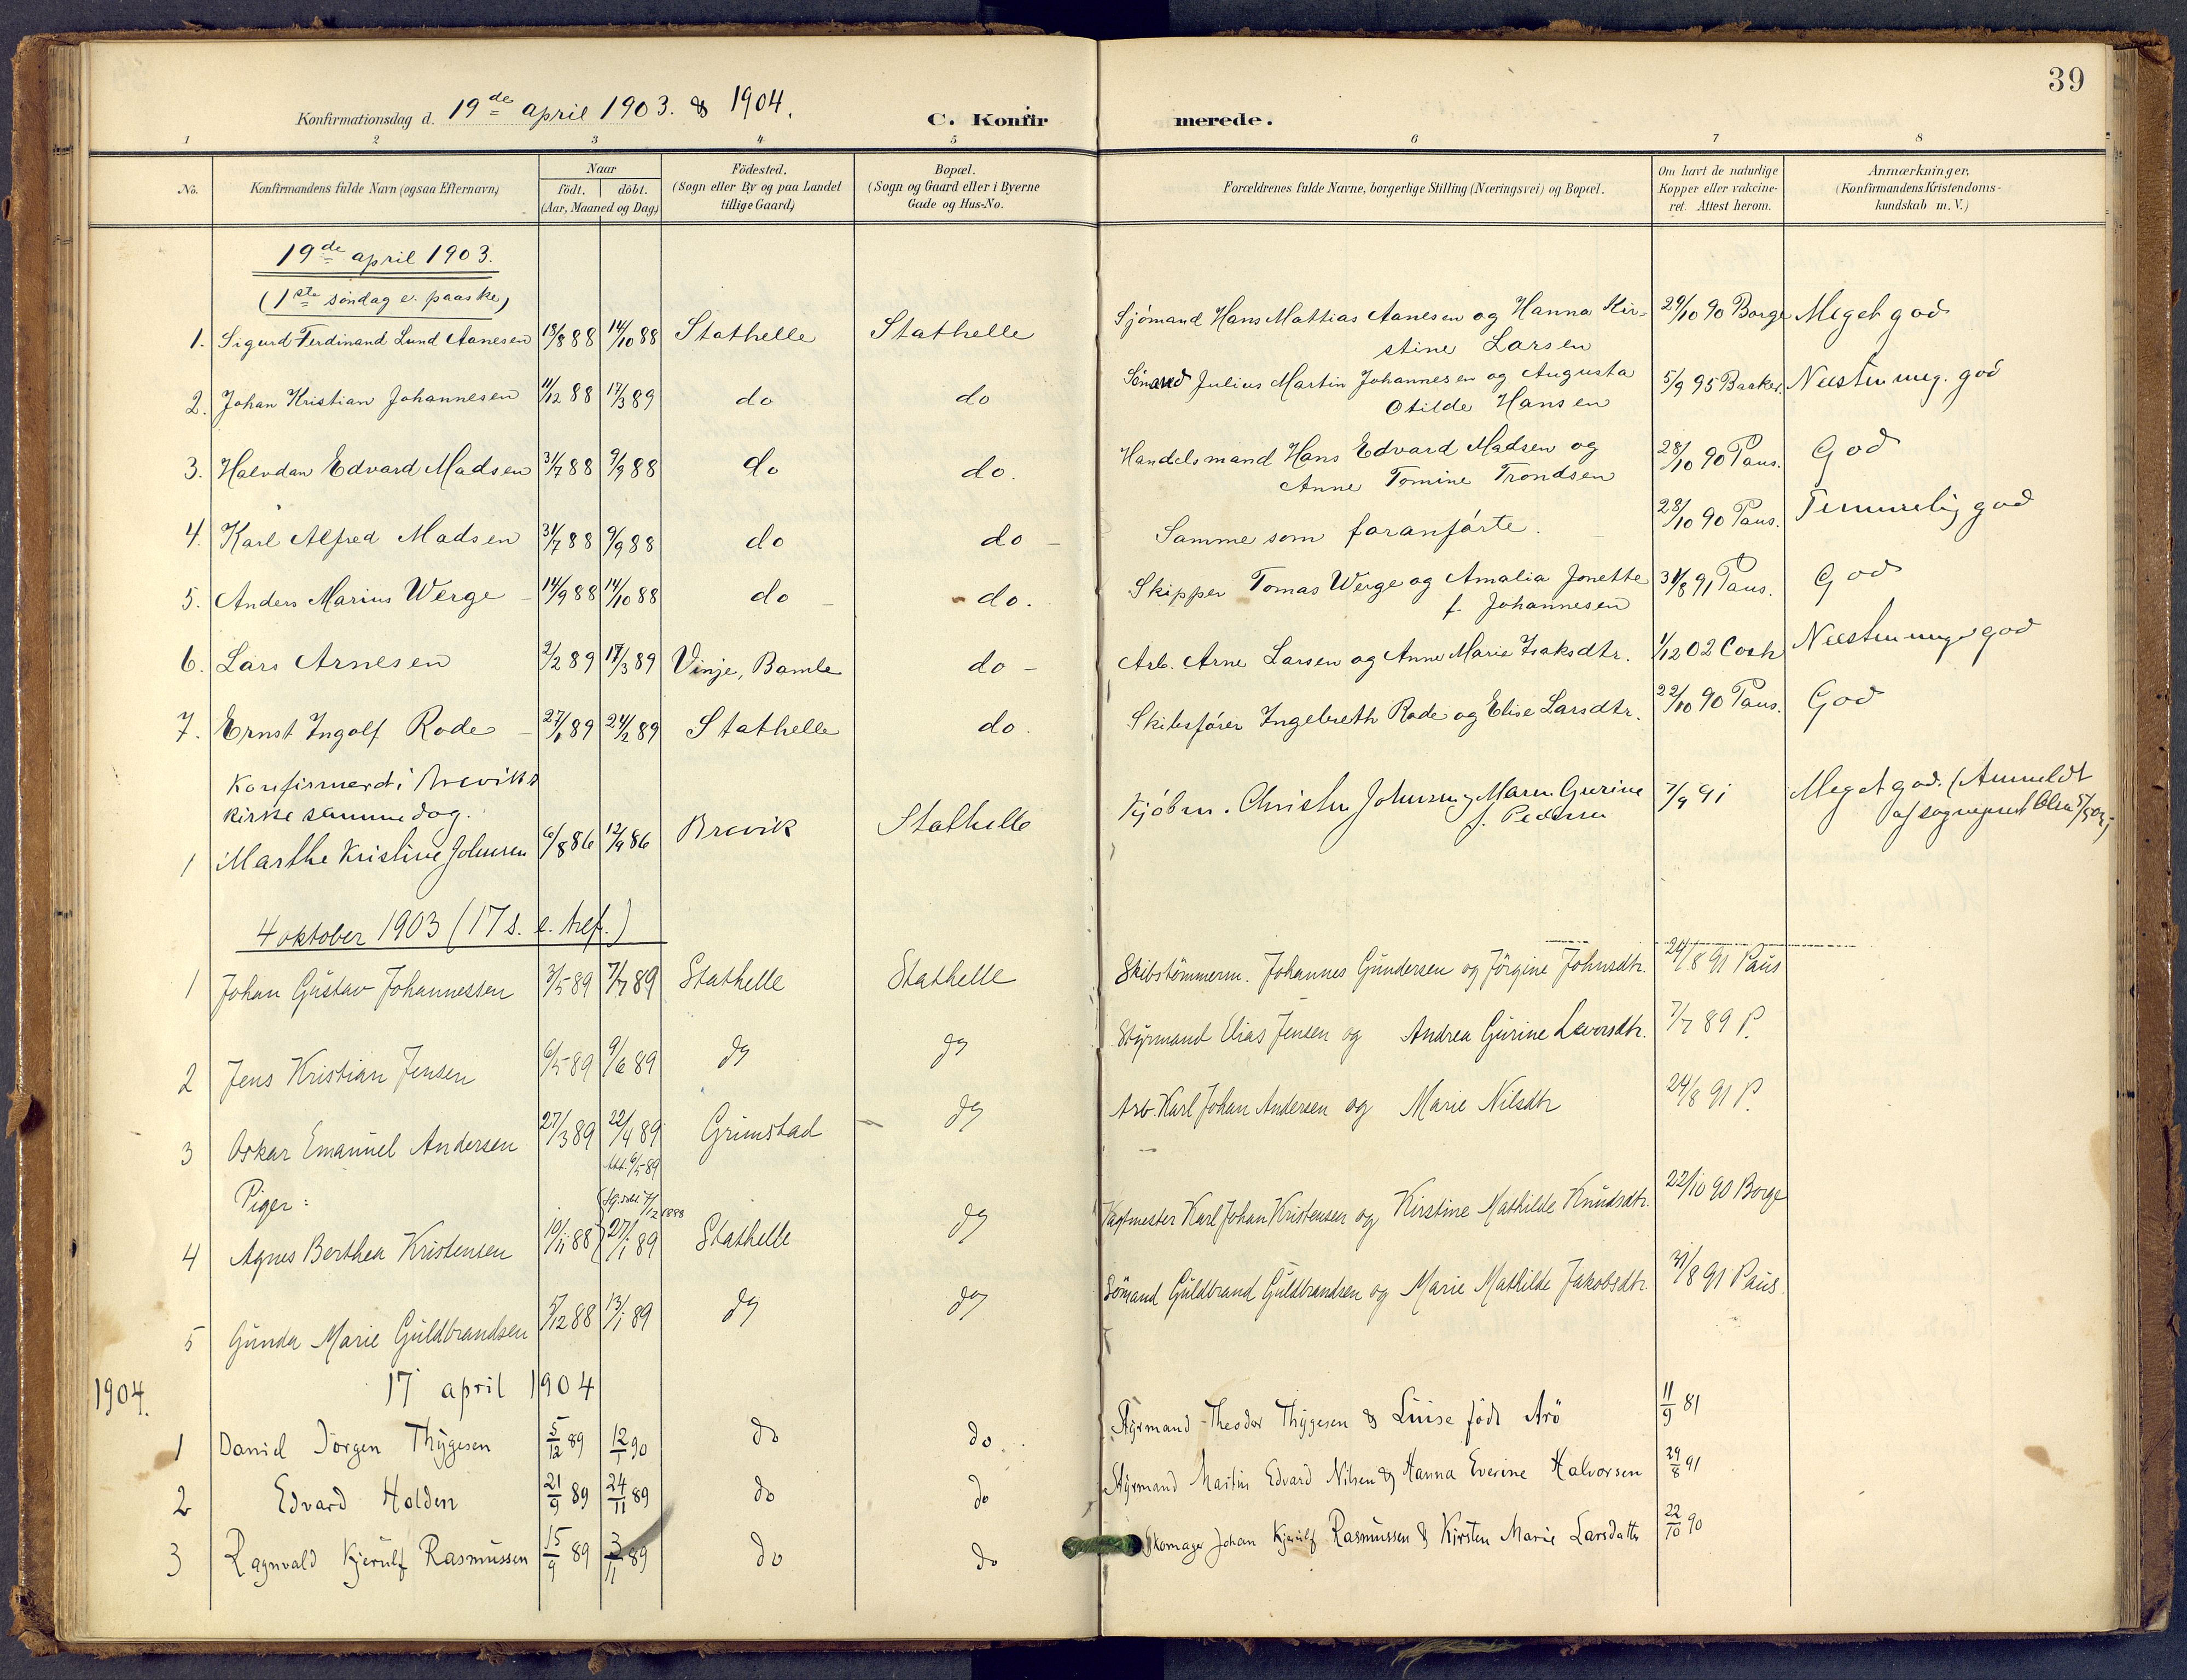 39
Konfirmationsdag d. 19de april 1903. & 1904.
C. Konfirmerede.
1 2 3 4 5 6 7 8
No. Konfirmandens fulde Navn (ogsaa Efternavn) Naar födt. döbt. (Aar, Maaned og Dag) Födested. (Sogn eller By og paa Landet tillige Gaard) Bopæl. (Sogn og Gaard eller i Byerne Gade og Hus-No. Forældrenes fulde Navne, borgerlige Stilling (Næringsvei) og Bopæl. Om havt de naturlige Kopper eller vakcineret. Attest herom. Anmærkninger, (Konfirmandens Kristendomskundskab m. V.)
19de april 1903.
(1ste söndag e. paaske)
1. Sigurd Ferdinand Lund Aanesen 18/8 88 14/10 88 Stathelle Stathelle Sjömand Hans Mattias Aanesen og Hanna Kirstine Larsen 29/10 90 Borge Meget god
2. Johan Kristian Johannesen 11/12 88 17/3 89 do do Sömand Julius Martin Johannesen og Augusta Otilde Hansen 5/9 95 Barker. Næsten meg. god
3. Halvdan Edvard Madsen 31/7 88 9/9 88 do do. Handelsmand Hans Edvard Madsen og Anne Tomine Trondsen 28/10 90 Paus. God
4. Karl Alfred Madsen 31/7 88 9/9 88 do do Samme som foranförte. 28/10 90 Paus. Temmelig god
5. Anders Marius Werge 14/9 88 14/10 88 do do. Skipper Tomas Werge og Amalia Jonette f. Johannesen 31/8 91 Paus. God
6. Lars Arnesen 2/2 89 17/3 89 Vinje, Bamle do Arb. Arne Larsen og Anne Marie Isaksdtr. 1/12 02 Cosh Næsten meget god
7. Ernst Ingolf Rode 27/1 89 24/2 89 Stathelle do. Skibsförer Ingebreth Rode og Elise Larsdtr. 22/10 90 Paus. God
Konfirmerdt i Breviks
kirke samme dag.
1 Marthe Kristine Johnsen 6/8 86 12/9 86 Brevik Stathelle Kjöbm. Christen Johnsen og Maren Gurine f. Pedersen 7/9 91 Meget god. (Anmeldt af sogneprest Olsen
4 oktober 1903 (17 s. e. tref.)
1 Johan Gustav Johannessen 3/5 89 7/7 89 Stathelle Stathelle Skibstömmerm. Johannes Gundersen og Jörgine Johnsdtr. 24/8 91 Paus
2 Jens Kristian Jensen 6/5 89 9/6 89 do do Styrmand Elias Jensen og Andrea Gurine Leversdtr. 7/7 89 P.
3 Oskar Emanuel Andersen 27/3 89 22/4 89 Att. 6/5 89 Grimstad do Arb. Karl Johan Andersen og Marie Nilsdtr 24/8 91 P.
Piger:
4 Agnes Berthea Kristensen 10/11 88 7/12 1888 27/1 89 Stathelle do Vagtmester Karl Johan Kristensen og Kirstine Mathilde Knudsdtr. 22/10 90 Borge
5 Gunda Marie Guldbrandsen 5/12 88 13/1 89 do do Sömand Guldbrand Guldbrandsen og Marie Mathilde Jakobsdtr. 31/8 91 Paus.
1904. 17 april 1904
1 Daniel Jörgen Thygesen 5/12 89 12/1 90 do do. Styrmand Theodor Thygesen & Luise födt Arö 11/9 81
2 Edvard Holden 21/9 89 24/11 89 do do Styrmand Martin Edvard Nilsen & Hanna Everine Halvorsen 29/8 91
3 Ragnvald Kjerulf Rasmussen 15/9 89 3/11 89 do do Skomager Johan Kjerulf Rasmussen & Kirsten Marie Larsdatter 22/10 90